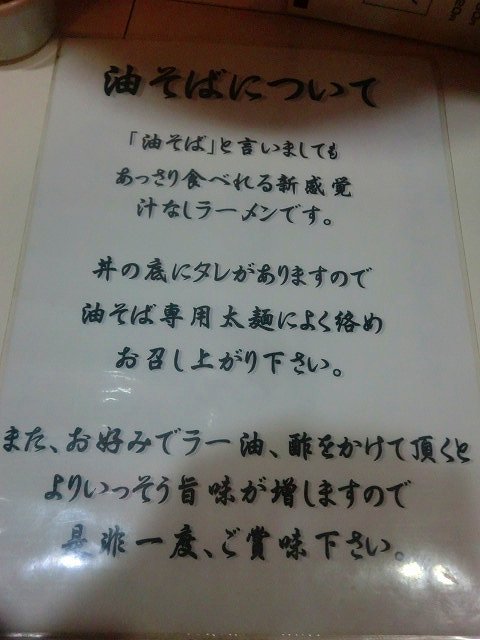 油そばについて
「油そば」と言いましても
あっさり食べれる新感覚
汁なしラーメンです。
丼の底にタレがありますので
油そば専用太麺によく絡め
お召し上がり下さい。
また、お好みでラー油、酢をかけて頂くと
よりいっそう旨味が増しますので
是非一度、ご賞味下さい。